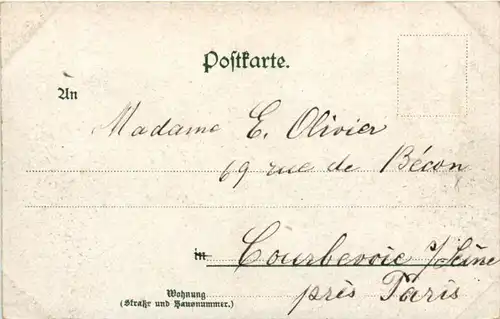 Postkarte.
An
Madame E. Olivier
69 rue de Bécon
in Courbevoie s/Seine
Wohnung près Paris
(Straße und Hausnummer.)